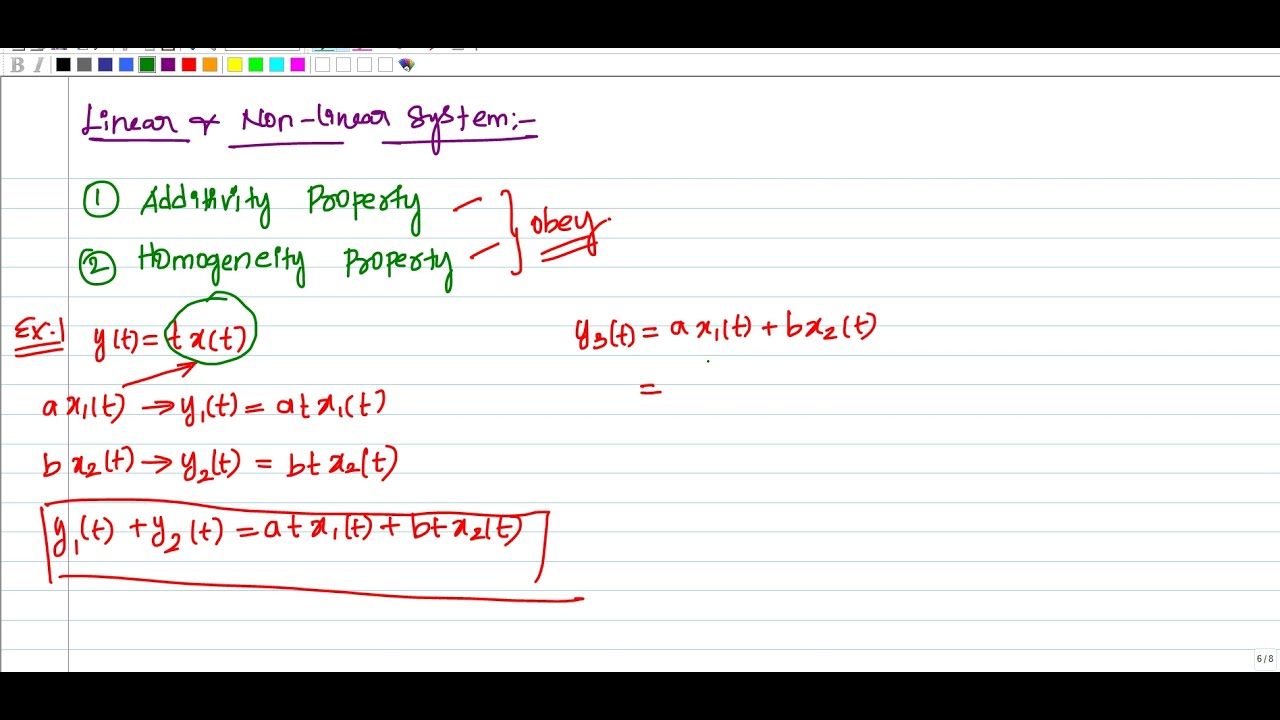 B I
Linear & Non-linear System:-
① Additivity Property
② Homogeneity Property
obey.
Ex:1 y(t) = t x(t)
a x₁(t) → y₁(t) = a t x₁(t)
b x₂(t) → y₂(t) = b t x₂(t)
y₁(t) + y₂(t) = a t x₁(t) + b t x₂(t)
y₃(t) = a x₁(t) + b x₂(t)
=
6 / 8